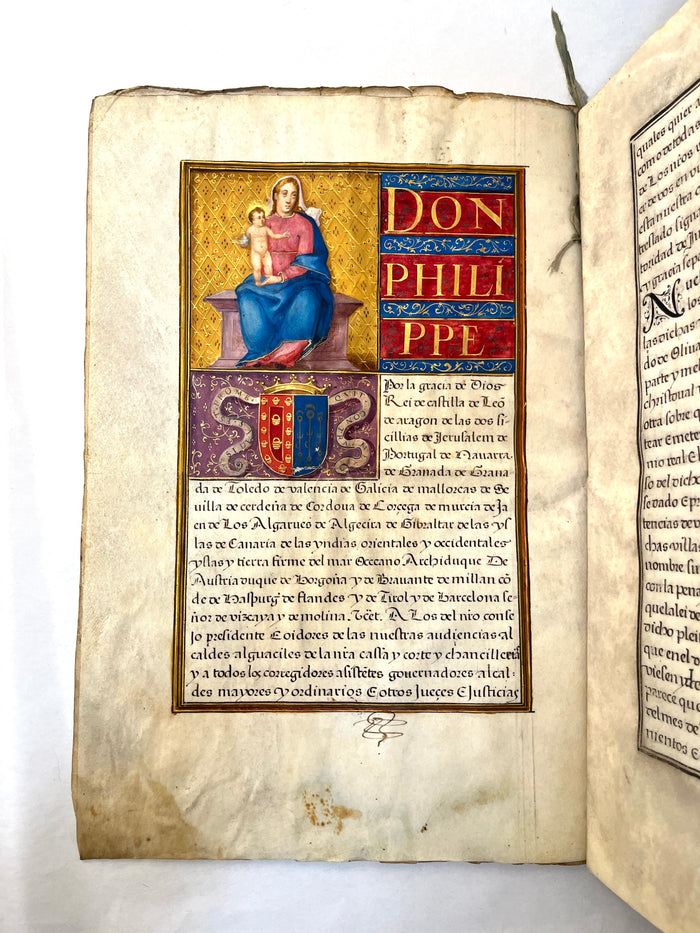 DON
PHILI
PPE
Por la gracia de Dios
Rei de castilla de Leõ
de aragon de las dos si
cillias de Jerusalem de
Portugal de Navarra
de Granada de Grana
da de Toledo de valencia de Galicia de mallorcas de Se
villa de cerdeña de Cordova de Corcega de murcia de Ja
en de Los Algarues de Algecira de Gibraltar de las ys
las de Canaria de las yndias orientales y occidentales
yslas y tierra firme del mar Occeano Archiduque De
Austria duque de Borgoña y de Bravante de millan cõ
de de Haspurg de flandes y de Tirol y de Barcelona se
ñor de vizcaya y de molina. Tcet. A Los del nrõ conse
jo presidente E oidores de las nuestras audiencias al
caldes alguaciles de la nrã cassa y corte y chancilleria
y a todos los corregidores asistẽtes governadores alcal
des mayores y ordinarios E otros Jueçes E Justicias
quales quier a
como de todas
de Los
de dos en
esta nuestra c
treslado sign
toridad de Ju
y gracia sepa
Nue
los
las dichas
do de Oliua
parte y me
christoual y
otra sobre q
tear E mete
mo real E l
so del dicho
se dado E pr
tencias de v
chas villas
nombre su
con la pena
quela lei de
dicho plei
que en el d
viesen y de
parece que
tel mes de
mentos E